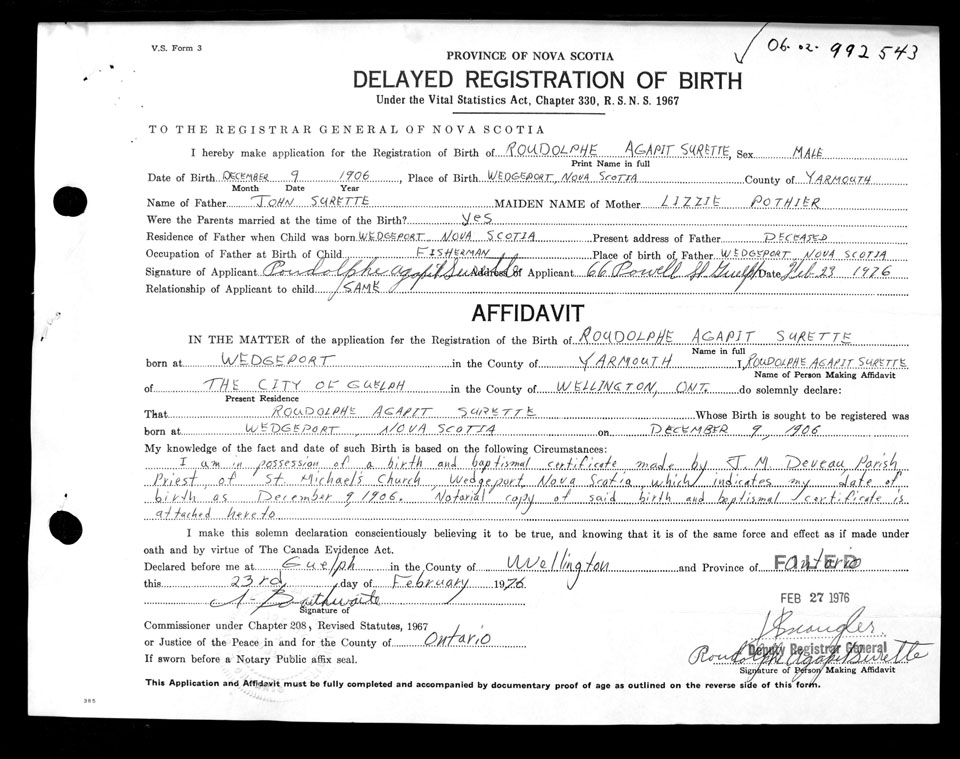 V.S. Form 3
06-02-992543
PROVINCE OF NOVA SCOTIA
DELAYED REGISTRATION OF BIRTH
Under the Vital Statistics Act, Chapter 330, R. S. N. S. 1967
TO THE REGISTRAR GENERAL OF NOVA SCOTIA
I hereby make application for the Registration of Birth of ROUDOLPHE AGAPIT SURETTE, Sex MALE
Print Name in full
Date of Birth DECEMBER 9 1906, Place of Birth WEDGEPORT, NOVA SCOTIA County of YARMOUTH
Month Date Year
Name of Father JOHN SURETTE MAIDEN NAME of Mother LIZZIE POTHIER
Were the Parents married at the time of the Birth? yes
Residence of Father when Child was born WEDGEPORT, NOVA SCOTIA Present address of Father DECEASED
Occupation of Father at Birth of Child FISHERMAN Place of birth of Father WEDGEPORT, NOVA SCOTIA
Signature of Applicant Roudolphe Agapit Surette Address of Applicant 66 Powell St Guelph Date Feb 23 1976
Relationship of Applicant to child SAME
AFFIDAVIT
IN THE MATTER of the application for the Registration of the Birth of ROUDOLPHE AGAPIT SURETTE
Name in full
born at WEDGEPORT in the County of YARMOUTH I, ROUDOLPHE AGAPIT SURETTE
Name of Person Making Affidavit
of THE CITY OF GUELPH in the County of WELLINGTON, ONT. do solemnly declare:
Present Residence
That ROUDOLPHE AGAPIT SURETTE Whose Birth is sought to be registered was
born at WEDGEPORT, NOVA SCOTIA on DECEMBER 9, 1906
My knowledge of the fact and date of such Birth is based on the following Circumstances:
I am in possession of a birth and baptismal certificate made by J. M. Deveau, Parish
Priest, of St. Michael's Church, Wedgeport, Nova Scotia, which indicates my date of
birth as December 9, 1906. Notarial copy of said birth and baptismal certificate is
attached hereto
I make this solemn declaration conscientiously believing it to be true, and knowing that it is of the same force and effect as if made under
oath and by virtue of The Canada Evidence Act.
Declared before me at Guelph in the County of Wellington and Province of Ontario
FILED
this 23rd day of February 1976
FEB 27 1976
Signature of
Commissioner under Chapter 208, Revised Statutes, 1967
or Justice of the Peace in and for the County of Ontario
Deputy Registrar General
Roudolphe Agapit Surette
If sworn before a Notary Public affix seal.
Signature of Person Making Affidavit
This Application and Affidavit must be fully completed and accompanied by documentary proof of age as outlined on the reverse side of this form.
385